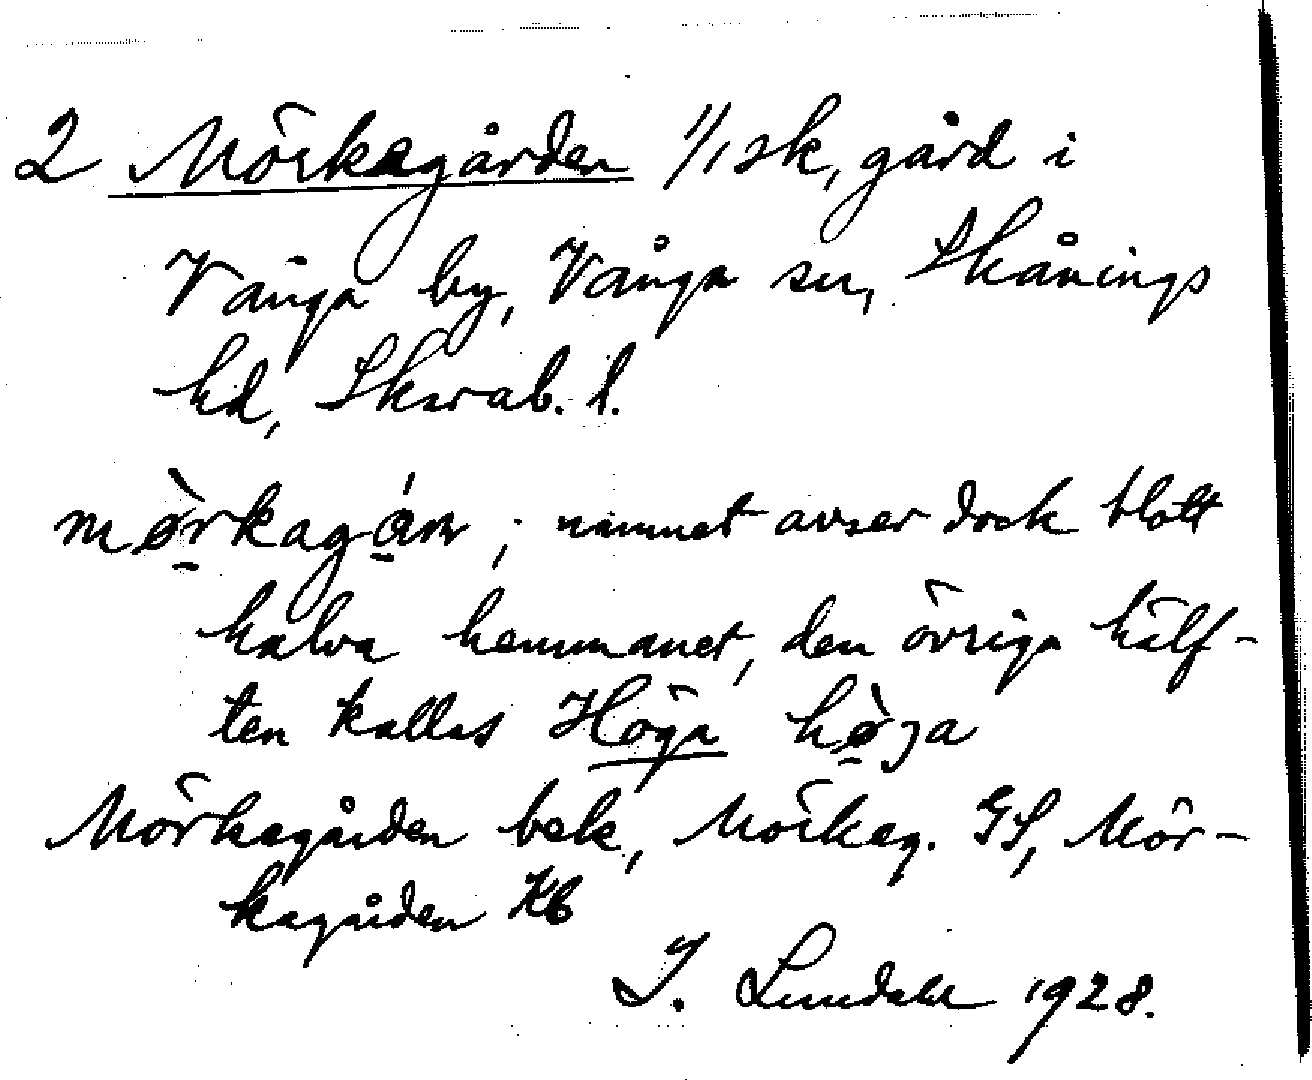 2 Mörkagården 1/1 sk, gård i
Vånga by, Vånga sn, Skånings
hd, Skarab. l.
mø̀rkagán; namnet avser dock blott
halva hemmanet, den övriga hälf-
ten kallas Höga hø̀ja
Mörkagården bek, Mörkag. GS, Mör-
kagården Kb
I. Lundahl 1928.